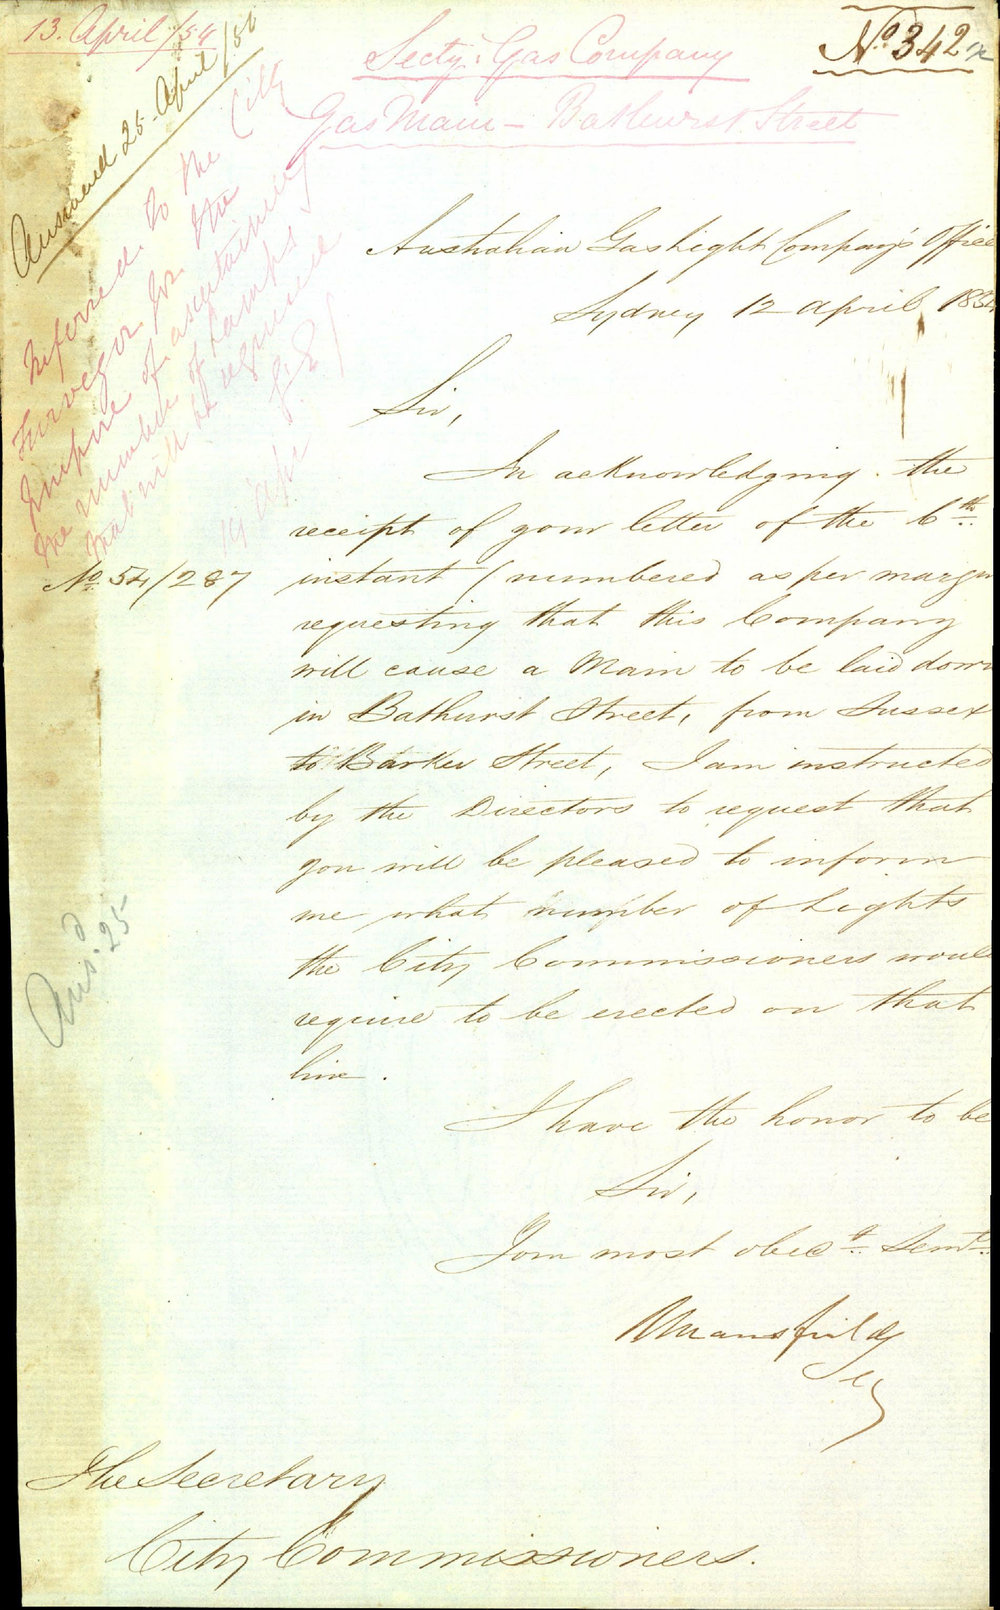 13. April/54
No. 342
Secty: Gas Company
Gas Main - Bathurst Street
Answered 25 April/54
Referred to the City
Surveyor for the
purpose of ascertaining
the number of Lamps
that will be required
19 Apr
Australian Gas Light Company's Office
Sydney 12 April 1854
Sir,
In acknowledging the
receipt of your letter of the 6th
No. 54/287
instant (numbered as per margin
requesting that this Company
will cause a Main to be laid down
in Bathurst Street, from Sussex
to Barker Street, I am instructed
by the Directors to request that
you will be pleased to inform
me what number of Lights
the City Commissioners would
require to be erected on that
line.
Ansd. 25
I have the honor to be
Sir,
Your most obedt. Servt.
Mansfield
Secy
The Secretary
City Commissioners.